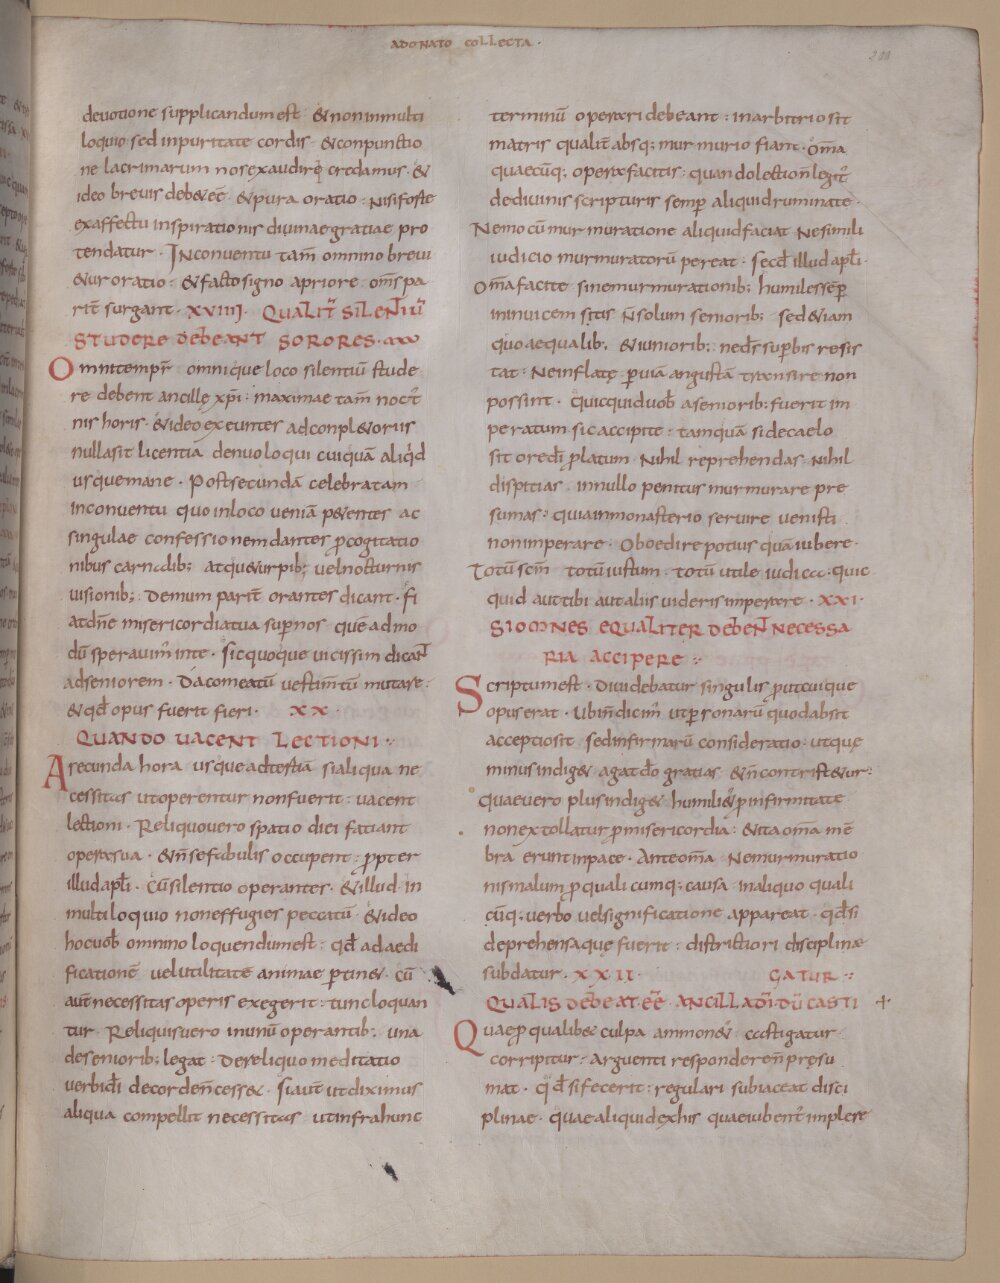 ADONATO COLLECTA·
211
deuotione supplicandum est · & non in multi
loquio sed in puritate cordis · & conpunctio
ne lacrimarum nos exaudire credamus · &
ideo breuis deb& eē · & pura oratio · nisi forte
ex affectu inspirationis diuinae gratiae pro
tendatur · In conuentu tam̄ omnino breui
&ur oratio · & facto signo a priore · oms̄ pa
rit̄ surgant · XVIIII· QUALIT̄ SILENTIŪ
STUDERE DEBEANT SORORES·
Omni tempr̄ omnique loco silentiū stude
re debent ancillę xp̄i · maximae tam̄ noct̄
nis horis · & ideo exeuntes ad conpl&oriis
nulla sit licentia denuo loqui cuiquā aliq̇d
usque mane · Post secundā celebratam
in conuentu quo in loco ueniā p&entes ac
singulae confessionem dantes p̄ cogitatio
nibus carnalib; atque turpib; uel nocturnis
uisionib; demum parit̄ orantes dicant · fi
at dn̄e misericordia tua sup̄ nos quēadmo
dū sperauim̄ in te · Sic quoque uicissim dican̄t
ad seniorem · Da comeatū uestim̄tū mutare ·
& qd̄ opus fuerit fieri · XX ·
QUANDO UACENT LECTIONI ·:
A secunda hora usque ad tertiā si aliqua ne
cessitas ut operentur non fuerit · uacent
lectioni · Reliquo uero spatio diei fatiant
opera sua · & n̄ se fabulis occupent · ppter
illud apl̄i · Cū silentio operantes · & illud · in
multiloquio non effugies peccatū · & ideo
hoc uob̄ omnino loquendum est · qd̄ ad aedi
ficationē uel utilitatē animae p̄tin& · cū
aut̄ necessitas operis exegerit · tunc loquan
tur · Reliquis uero in unū operantib; una
de seniorib; legat · De reliquo meditatio
uerbi dī de corde n̄ cesse& · Si aut̄ ut diximus
aliqua compellit necessitas ut infra hunc
terminū operari debeant · in arbitrio sit
matris qualit̄ absq; murmurio fiant · Om̄a
quaecūq; opera facitis · quando lection̄ legit̄
de diuinis scripturis semp̄ aliquid ruminate ·
Nemo cū murmuratione aliquid faciat Ne simili
iudicio murmuratorū pereat · secd̄ illud apl̄i ·
Om̄a facite sine murmurationib; humiles sēp̄
in inuicem sitis n̄ solum seniorib; sed &iam
quoaequalib; & iuniorib; nc ds̄ superbis resis
tat · Ne inflatę p̄ uiā angustā transire non
possint · Quicquid uob̄ a seniorib; fuerit im
peratum sic accipite · tamquā si de caelo
sit ore dī p̄latum · Nihil reprehendas · Nihil
dispitias · in nullo penitus murmurare pre
sumas · quia in monasterio seruire uenisti
non imperare · Oboedire potius quā iubere ·
Totū scm̄ totū iustum · totū utile iudica · quic
quid aut tibi aut aliis uideris imperare · XXI·
SI OMNES EQUALITER DEBEN̄T NECESSA
RIA ACCIPERE ·:
Scriptum est · Diuidebatur singulis put cuique
opus erat · Ubi n̄ dicim̄ ut personarū quod absit
acceptio sit sed infirmarū consideratio · ut quę
minus indig& agat dō gratias & n̄ contrist&ur ·
quae uero plus indig& humili&̄ p̄ infirmitate
non extollatur p̄ misericordia · & ita om̄a mē
bra erunt in pace · Ante om̄a Ne murmuratio
nis malum p̄ qualicumq; causa in aliquo quali
cūq; uerbo uel significatione appareat · qd̄ si
deprehensa que fuerit · districtiori disciplinae
subdatur · XXII· GATUR ·:
QUALIS DEBEAT EE̅ ANCILLA DĪ DŪ CASTI +
Quae p̄ qualib& culpa ammon&ur̄ castigatur ·
corripitur · Arguenti respondere n̄ pręsu
mat · qd̄ si fecerit · regulari subiaceat disci
plinae · quae aliquid ex his quae iubent̄ implere